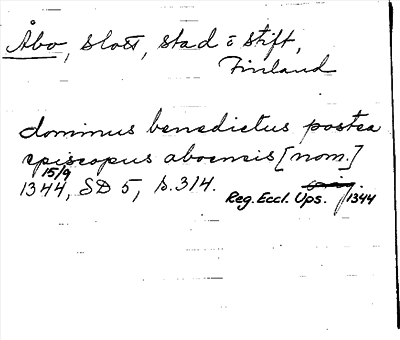 Åbo, slott, stad o stift,
Finland
dominus benedictus postea
episcopus aboensis [nom.]
15/9
1344, SD 5, s. 314.
Reg. Eccl. Ups. 1344